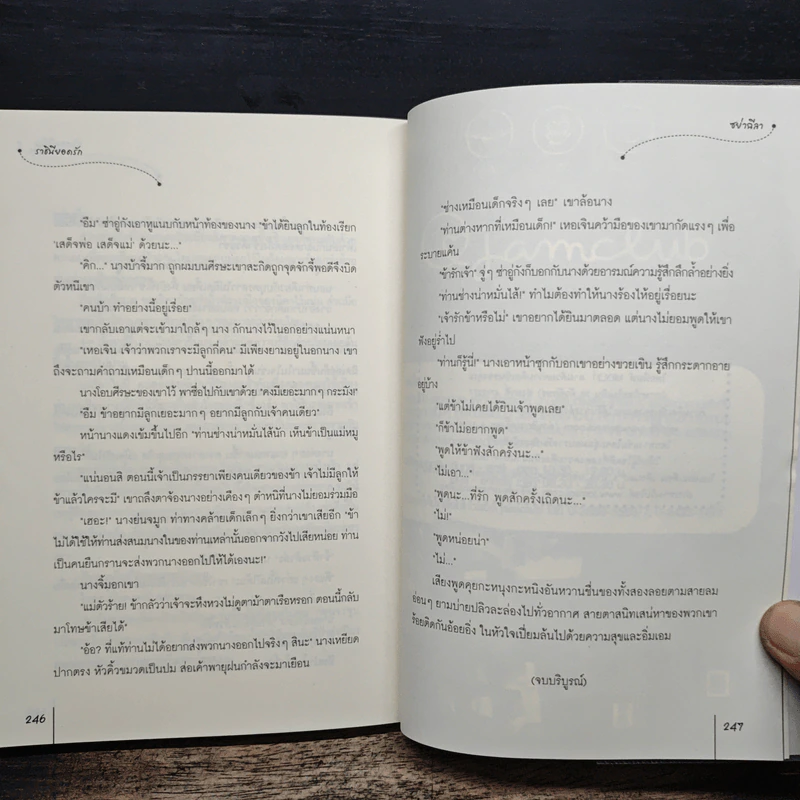 ราชินียอดรัก
"อืม" ซ่าอู่กังเอาหูแนบกับหน้าท้องของนาง "ข้าได้ยินลูกในท้องเรียก
'เสด็จพ่อ เสด็จแม่' ด้วยนะ..."
"คิก..." นางบ้าจี้มาก ถูกผมบนศีรษะเขาสะกิดถูกจุดจักจี้พอดีจึงบิด
ตัวหนีเขา
"คนบ้า ทำอย่างนี้อยู่เรื่อย"
เขากลับเอาแต่จะเข้ามาใกล้ๆ นาง กักนางไว้ในอกอย่างแน่นหนา
"เหอเจิน เจ้าว่าพวกเราจะมีลูกกี่คน" มีเพียงยามอยู่ในอกนาง เขา
ถึงจะถามคำถามเหมือนเด็กๆ ปานนี้ออกมาได้
นางโอบศีรษะของเขาไว้ พาซื่อไปกับเขาด้วย "คงมีเยอะมากๆ กระมัง!"
"อืม ข้าอยากมีลูกเยอะมากๆ อยากมีลูกกับเจ้าคนเดียว"
หน้านางแดงเข้มขึ้นไปอีก "ท่านช่างน่าหมั่นไส้นัก เห็นข้าเป็นแม่หมู
หรือไร"
"แน่นอนสิ ตอนนี้เจ้าเป็นภรรยาเพียงคนเดียวของข้า เจ้าไม่มีลูกให้
ข้าแล้วใครจะมี" เขาถลึงตาจ้องนางอย่างเคืองๆ ตำหนิที่นางไม่ยอมร่วมมือ
"เฮอะ!" นางย่นจมูก ท่าทางคล้ายเด็กเล็กๆ ยิ่งกว่าเขาเสียอีก "ข้า
ไม่ได้ใช้ให้ท่านส่งสนมนางในของท่านเหล่านั้นออกจากวังไปเสียหน่อย ท่าน
เป็นคนยืนกรานจะส่งพวกนางออกไปให้ได้เองนะ!"
นางจิ้มอกเขา
"แม่ตัวร้าย! ข้ากลัวว่าเจ้าจะหึงหวงไม่ดูตาม้าตาเรือหรอก ตอนนี้กลับ
มาโทษข้าเสียได้"
"อ้อ? ที่แท้ท่านไม่ได้อยากส่งพวกนางออกไปจริงๆ สินะ" นางเหยียด
ปากตรง หัวคิ้วขมวดเป็นปม ส่อเค้าพายุฝนกำลังจะมาเยือน
246
ชย่าฉีลา
"ช่างเหมือนเด็กจริงๆ เลย" เขาล้อนาง
"ท่านต่างหากที่เหมือนเด็ก!" เหอเจินคว้ามือของเขามากัดแรงๆ เพื่อ
ระบายแค้น
"ข้ารักเจ้า" จู่ๆ ซ่าอู่กังก็บอกกับนางด้วยอารมณ์ความรู้สึกลึกล้ำอย่างยิ่ง
"ท่านช่างน่าหมั่นไส้!" ทำไมต้องทำให้นางร้องไห้อยู่เรื่อยนะ
"เจ้ารักข้าหรือไม่" เขาอยากได้ยินมาตลอด แต่นางไม่ยอมพูดให้เขา
ฟังอยู่ร่ำไป
"ท่านก็รู้นี่!" นางเอาหน้าซุกกับอกเขาอย่างขวยเขิน รู้สึกกระดากอาย
อยู่บ้าง
"แต่ข้าไม่เคยได้ยินเจ้าพูดเลย"
"ก็ข้าไม่อยากพูด"
"พูดให้ข้าฟังสักครั้งนะ..."
"ไม่เอา..."
"พูดนะ...ที่รัก พูดสักครั้งเถิดนะ..."
"ไม่!"
"พูดหน่อยน่า"
"ไม่..."
เสียงพูดคุยกะหนุงกะหนิงอันหวานชื่นของทั้งสองลอยตามสายลม
อ่อนๆ ยามบ่ายปลิวละล่องไปทั่วอากาศ สายตาสนิทเสน่หาของพวกเขา
ร้อยติดกันอ้อยอิ่ง ในหัวใจเปี่ยมล้นไปด้วยความสุขและอิ่มเอม
(จบบริบูรณ์)
247